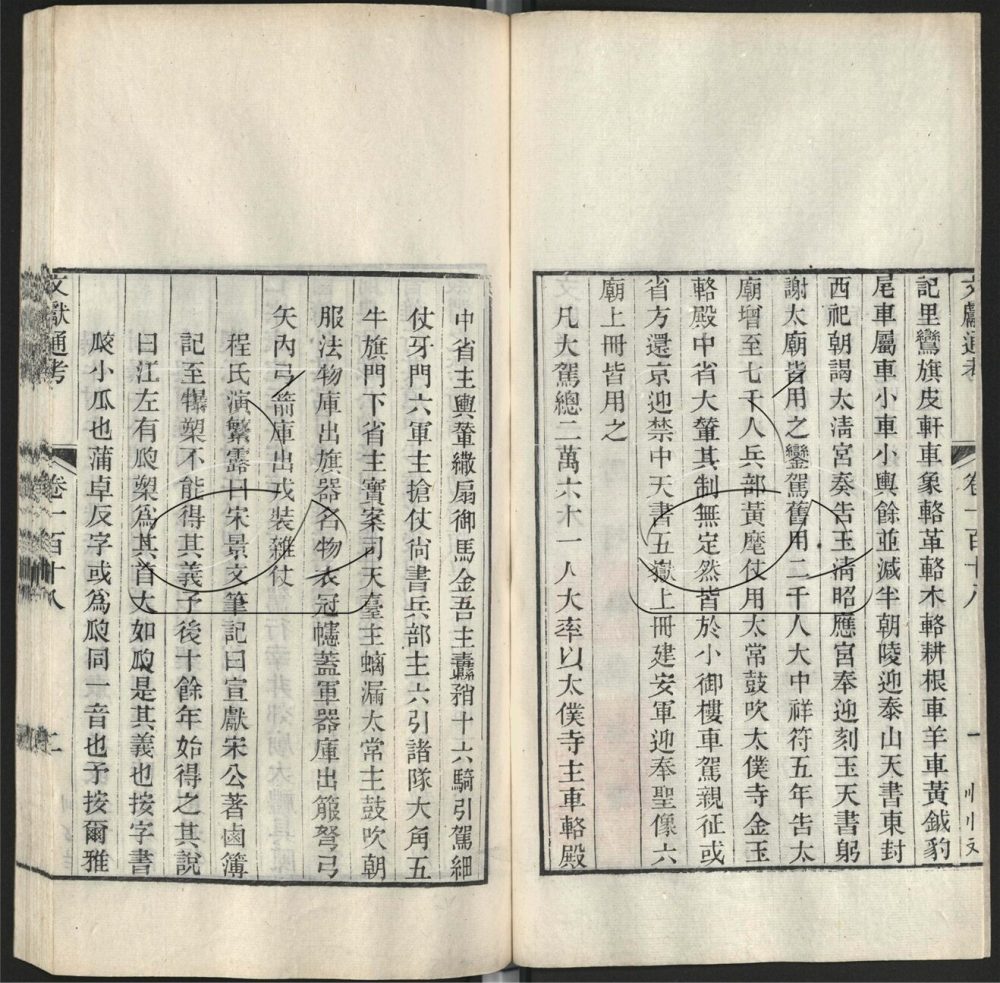 文獻通考 卷一百十八 一
記里鸞旗皮軒車象輅革輅木輅耕根車羊車黃鉞豹
尾車屬車小車小輿餘並減半朝陵迎泰山天書東封
西祀朝謁太清宮奏告玉清昭應宮奉迎刻玉天書躬
謝太廟皆用之鑾駕舊用二千人大中祥符五年告太
廟增至七千人兵部黃麾仗用太常鼓吹太僕寺金玉
輅殿中省大輦其制無定然皆於小御樓車駕親征或
省方還京迎禁中天書五嶽上冊建安軍迎奉聖像六
廟上冊皆用之
凡大駕總二萬六十一人大率以太僕寺主車輅殿
中省主輿輦繖扇御馬金吾主纛矟十六騎引駕細
仗牙門六軍主搶仗尙書兵部主六引諸隊大角五
牛旗門下省主寶案司天臺主螭漏太常主鼓吹朝
服法物庫出旗器名物衣冠幰蓋軍器庫出箙弩弓
矢內弓箭庫出戎裝雜仗
程氏演繁露曰宋景文筆記曰宣獻宋公著鹵簿
記至㹎槊不能得其義予後十餘年始得之其說
曰江左有瓟槊爲其首大如瓟是其義也按字書
瓟小瓜也蒲卓反字或爲瓟同一音也予按爾雅
文獻通考 卷一百十八 二